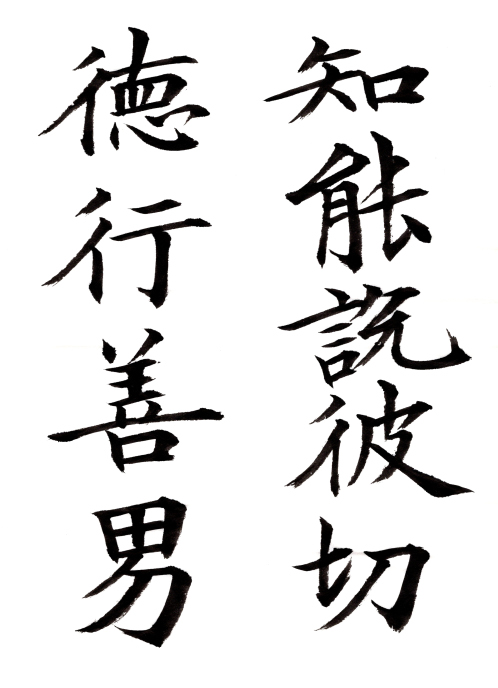 知能説彼切
徳行善男